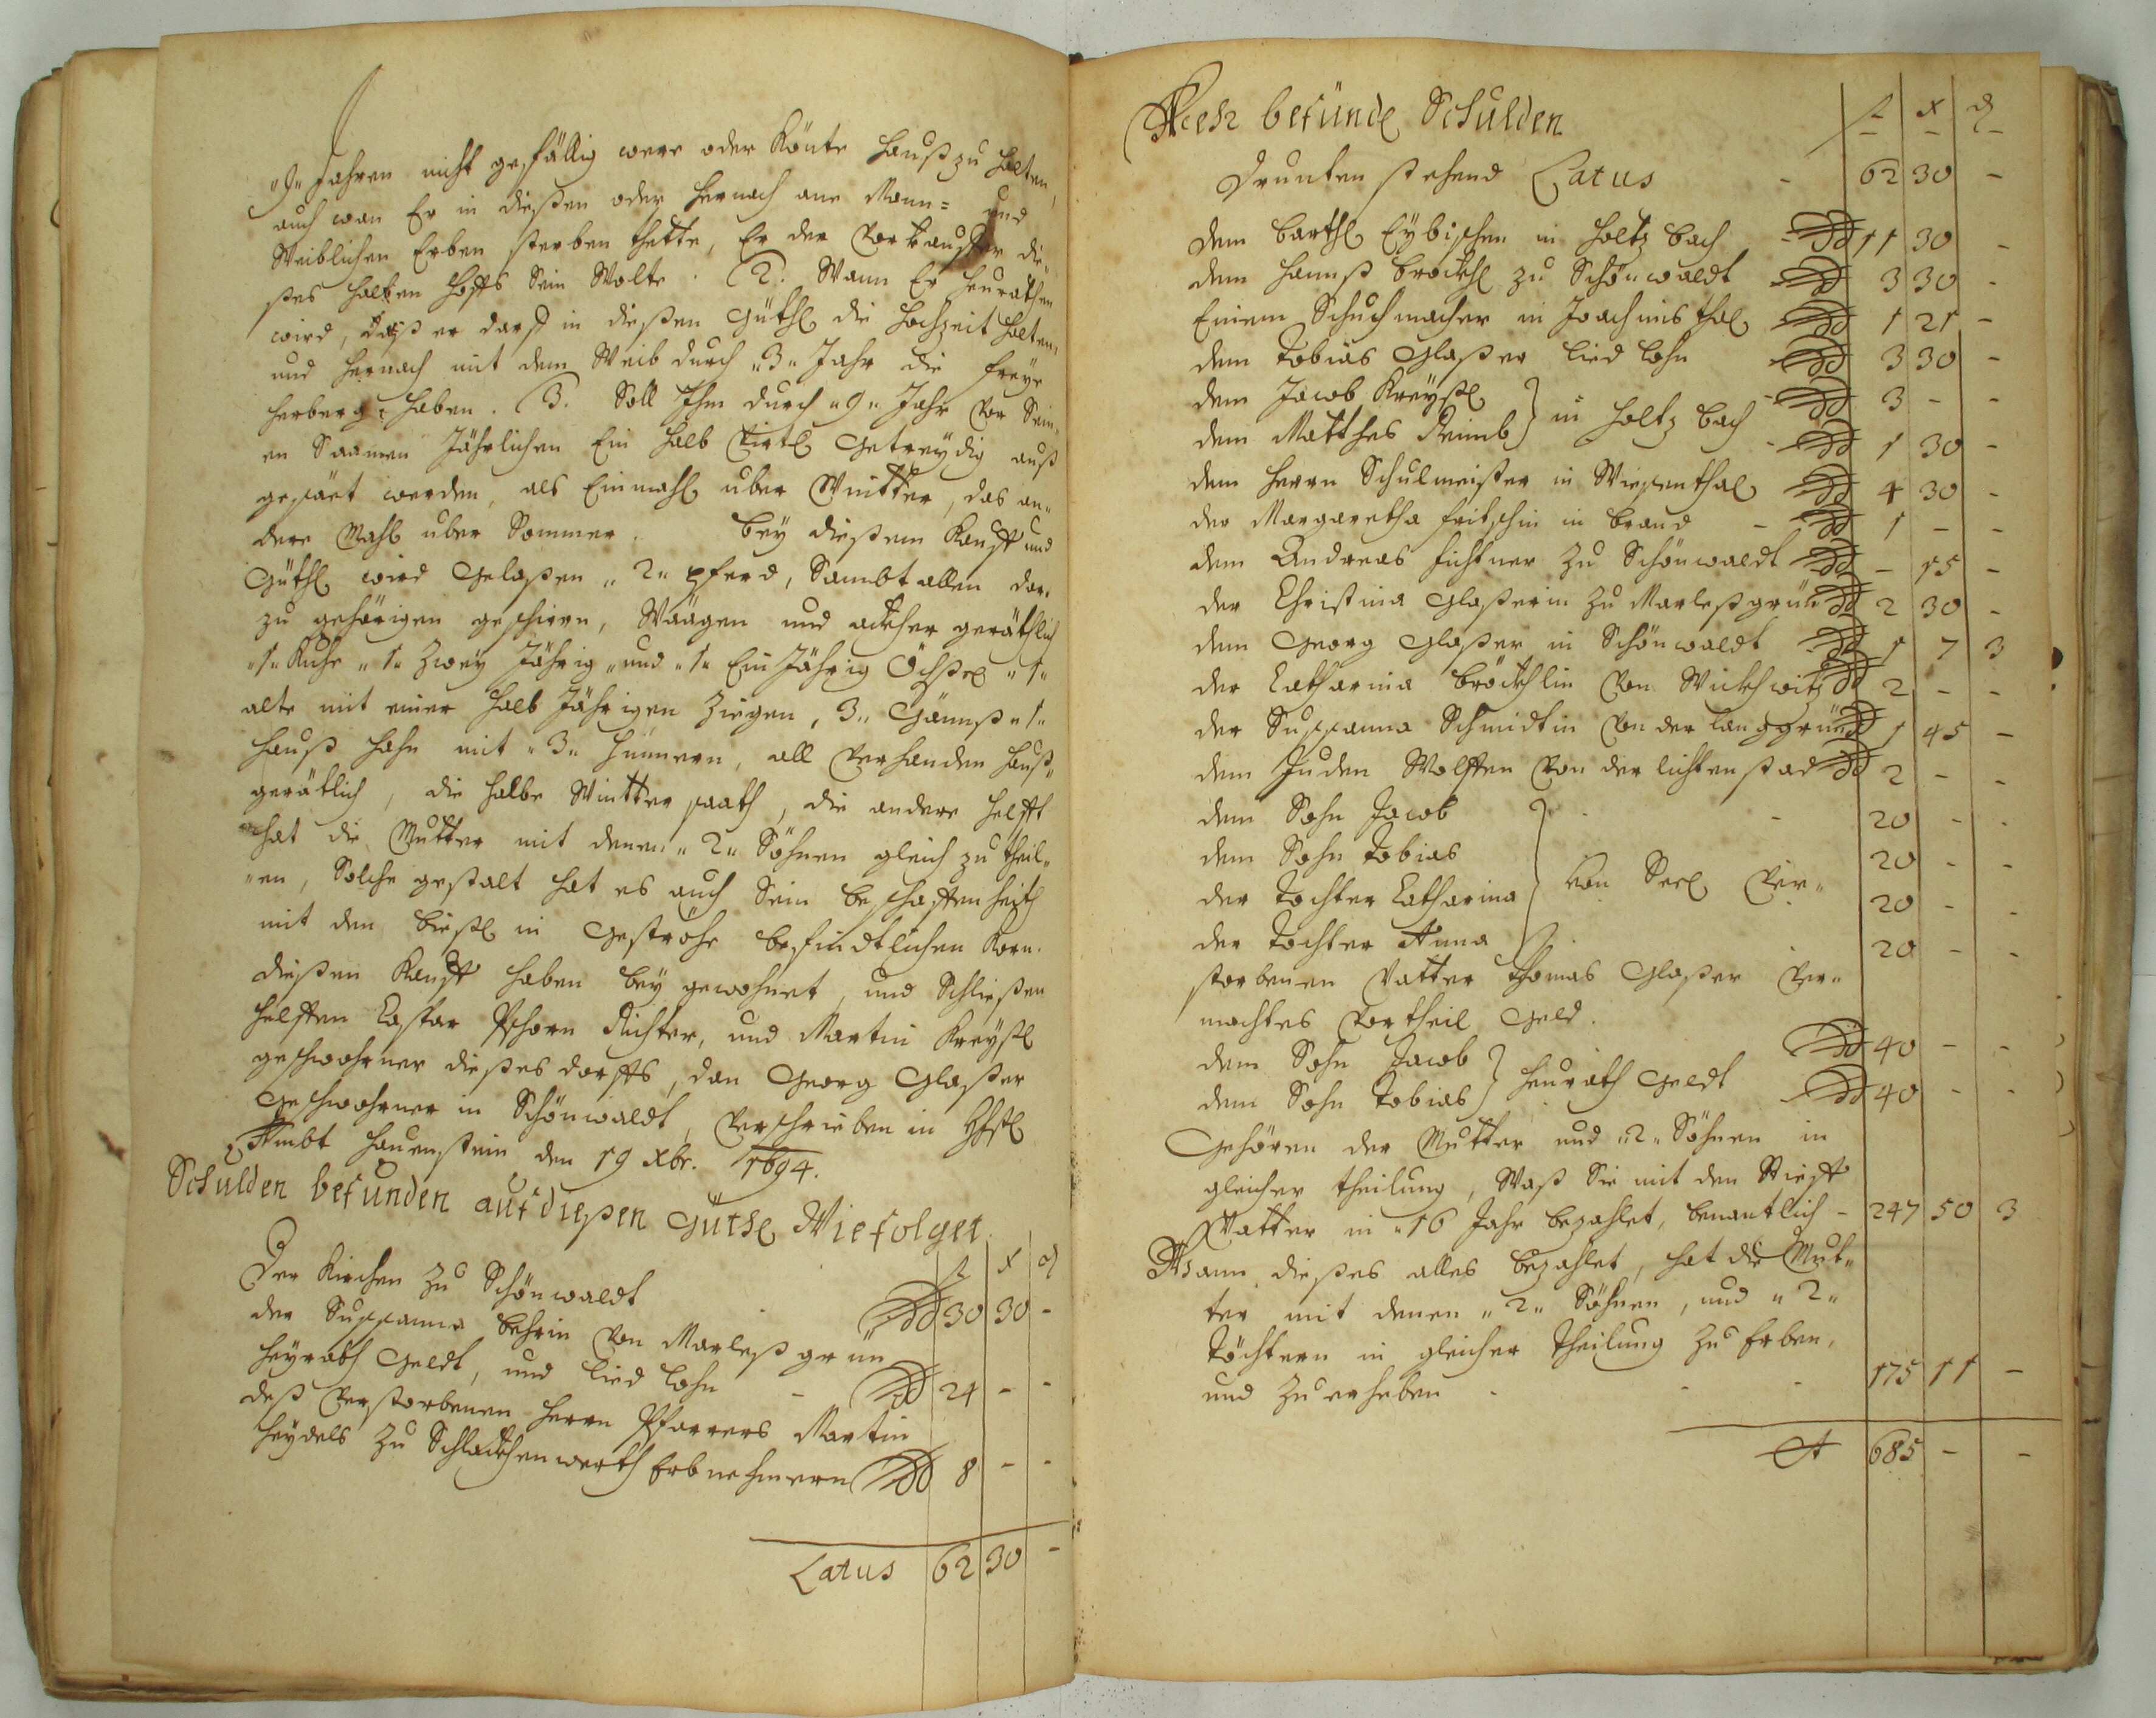 "9" Jahren nicht gefällig were oder Könte Hauß zu halten,
auch wan Er in dießen oder hernach ane Mann= und
Weiblichen Erben sterben thette, Er der Verkauffer die=
ßes halben Hoffs Sein Wolte. 2. Wann Er heurathen
wird, daß er darf in dießen Güthl die Hochzeit halten,
und hernach mit dem Weib durch "3" Jahr die freye
Herberg haben. 3. Soll Ihm durch "9" Jahr vor Sein=
en Saamen Jährlichen Ein halb Virtl Getreydig auß
gesäet werden, als Einmahl uber Wintter, das an=
dere Mahl uber Sommer. Bey dießem Kauff und
Güthl wird Gelaßen "2" Pferd, Sambt allen dar=
zu gehörigen geschirrn, Wäägen und ackher geräthlich
"1" Kuhe "1" Zwey Jährig "und "1" Ein Jährig Öchßel "1"
alte mit einer halb Jährigen Ziegen, 3" Gännß "1"
Hauß Hahn mit "3" Hünnern, all verhanden Hauß=
gerätlich, die halbe Wintter saath, die andere helfft
hat die Mutter mit denen "2" Söhnen gleich zu theil=
en, Solche gestalt hat es auch Sein beschaffenheith
mit den bießl in Geströhe befindtlichen Korn.
Dießen Kauff haben bey gewohnet, und Schließen
helffen Caspar Pschorn Richter, und Martin Kreyßl
geschwohrner dießes dorffs, dan Georg Glaßer
Geschwohrner in Schönwaldt, verschrieben in
Ambt Hauenstein den 19 Xbr. 1694.
Schulden befunden auf dießen Güthl Wie folget
f x d
Der Kirchen Zu Schönwaldt dd 30 30 -
der Sussanna Behrin von Marleßgrün
Heyrath Geldt, und Lied lohn - dd 24 - -
deß verstorbenen Herrn Pfarrers Martin
Heydels Zu Schlackhenwerth Erbnehmern dd 8 - -
Latus 62 30 -
Mehr befünde Schulden
f x d
Drunten stehend Latus - 62 30 -
dem Barthl Eybischen in Holtzbach - dd 11 30 -
dem Hannß Brockhl zu Schönwaldt - dd 3 30 -
Einem Schuchmacher in Joachimsthal dd 1 21 -
dem Tobias Glaßer Lied lohn - dd 3 30 -
dem Jacob Kreyßl } in Holtzbach - dd 3 - -
dem Matthes Reimb } - dd 1 30 -
dem Herrn Schulmeister in Wiesenthal dd 4 30 -
der Margaretha Fritschin in Brand - dd 1 - -
dem Andreas Fichtner Zu Schönwaldt dd - 15 -
der Christina Glaßerin Zu Marleßgrün dd 2 30 -
dem Georg Glaßer in Schönwaldt dd 1 7 3
der Catharina Bröckhlin von Wickhwitz dd 2 - -
der Sussanna Schmidtin von der Langgrün dd 1 45 -
dem Juden Wolffen von der Lichtenstad dd 2 - -
dem Sohn Jacob } - 20 - -
dem Sohn Tobias 20 - -
der Tochter Catharina von Seel Ver= 20 - -
der Tochter Anna } 20 - -
storbenen Vatter Thomas Glaßer ver=
machtes Vortheil Geld.
dem Sohn Jacob } Heurath Geldt dd 40 - -
dem Sohn Tobias } dd 40 - -
Gehören der Mutter und "2" Söhnen in
gleicher theilung, Waß Sie mit den Stieff
Vatter in "16 Jahr bezahlet, benantlich - 247 50 3
Wann dießes alles bezahlet, hat die Mut=
ter mit denen "2" Söhnen, und "2"
Töchtern in gleicher Theilung Zu Erben,
und Zu erheben - - - 175 11 -
685 - -